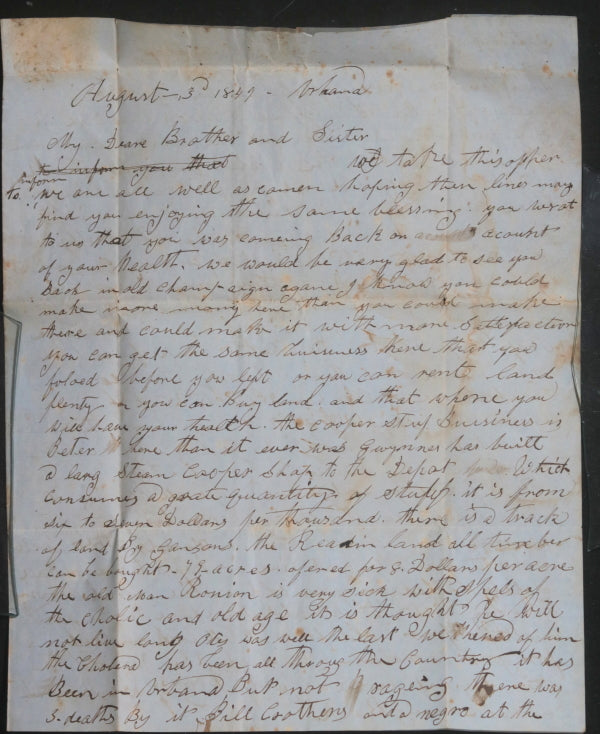 August 3d 1849 - Urbana
My Deare Brather and Sister
we take this opper
to inform you that
to inform we are all well as comen hoping than lines may
find you enjoying the same blessing. you wrat
to us that you was comeing Back on acount
of your health. we would be very glad to see you
Back in old Champaign agane I know you could
make more mony here than you could make
there and could make it with more Satisfaction
you can get the same Buisness here that you
folod before you left or you can rent land
plenty or you can buy land and that whare you
will have your health. the cooper stuf Buisines is
Beter here than it ever was Gwynnes has built
a larg Steam Cooper Shop to the Depot Which
Consumes a grate quantity of Stuff. it is from
six to seven Dollars per thousand. there is a track
of land By Gansons. the Readin land all timber
can be bought - 79 acres. ofered for 8 Dollars per acre
the old man Ronion is very Sick with Spels of
the Cholic and old age it is thought he will
not live long Otis was well the last we hered of him
the Cholera has been all throug the Country it has
Been in Urbana But not rageing there was
5 deaths By it Bill Coothers and a negro at the